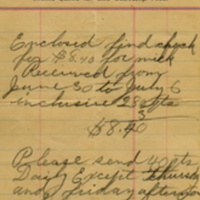 Enclosed find check
for $8.40 for milk
Received from
June 30 to July 6
inclusive 28 qts
3
$8.40
Please send 40 qts
Daily Except Thursday
and Friday afternoon